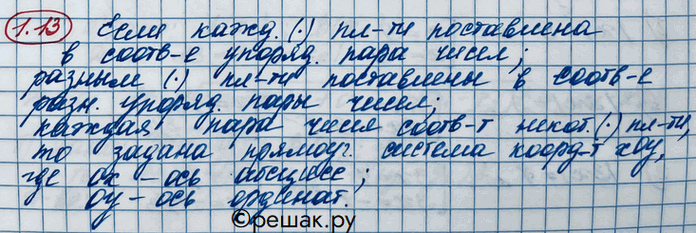 1.13 Если кажд. (·) пл-ти поставлена
в соотв-е упоряд. пара чисел;
разным (·) пл-ти поставлены в соотв-е
разн. упоряд. пары чисел;
каждая пара чисел соотв-т некот. (·) пл-ти,
то задана прямоуг. система коорд-т xOy,
где ox - ось абсцисс;
oy - ось ординат.
©решак.ру